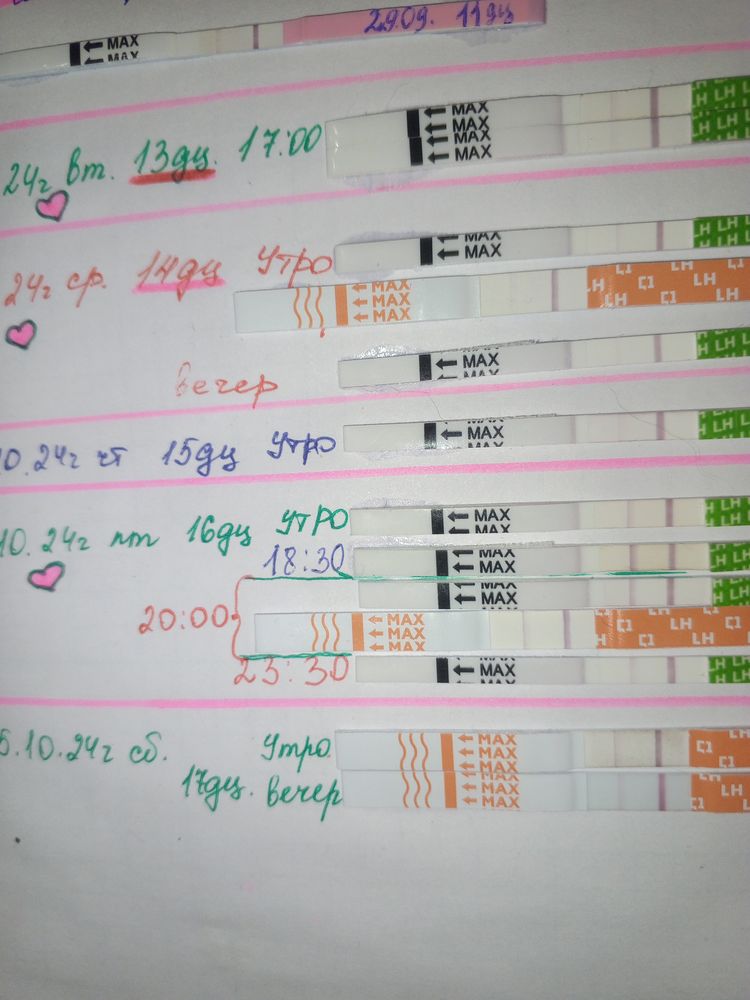 29.09. 11дц
MAX
MAX
24г вт. 13дц. 17:00
MAX
MAX
MAX
MAX
LH LH
LH LH
24г ср. 14дц Утро
MAX
MAX
LH
LH
MAX
MAX
MAX
LH C1 LH C1
вечер
MAX
MAX
LH
10.24г чт 15дц Утро
MAX
MAX
LH
10.24г пт 16дц УТРО
MAX
MAX
LH
18:30
MAX
MAX
LH
20:00
MAX
MAX
LH
MAX
MAX
MAX
C1 LH C1
LH
23:30
MAX
MAX
LH
5.10.24г сб. Утро
MAX
MAX
MAX
C1 LH
17дц. вечер
MAX
MAX
MAX
LH C1